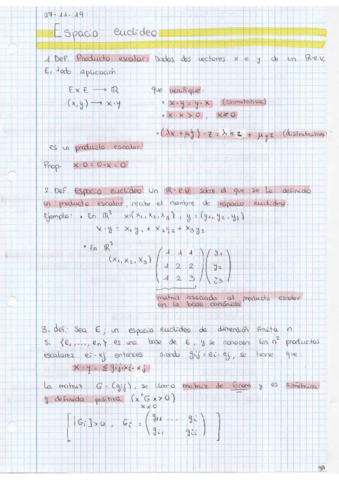 27-11-19
Espacio euclídeo
1. Def. Producto escalar: Dados dos vectores x e y de un R-e.v,
E, toda aplicación
E x E → R que verifique:
(x, y) → x·y • x·y = y·x (conmutativa)
• x·x > 0, x≠0
• (λx + μy)·z = λxz + μyz (distributiva)
es un producto escalar.
Prop. x·0 = 0·x = 0
2. Def. Espacio euclídeo Un R-e.v sobre el que se ha definido
un producto escalar, recibe el nombre de espacio euclídeo.
Ejemplo: • En R³ x=(x₁, x₂, x₃), y = (y₁, y₂, y₃)
x·y = x₁y₁ + x₂y₂ + x₃y₃
• En R³
(x₁, x₂, x₃) (1 1 1) (y₁)
(1 2 2) (y₂)
(1 2 3) (y₃)
matriz asociada al producto escalar
en la base canónica
3. def: Sea E, un espacio euclídeo de dimensión finita n.
Si {e₁, ..., eₙ} es una base de E, y se conocen los n² productos
escalares ei·ej entonces siendo gij = ei·ej, se tiene que
x·y = Σgij·xi·xj
La matriz G = (gij), se llama matriz de Gram y es simétrica
y definida positiva (xᵗGx>0)
x≠0
[|Gi|>0, Gi = (g₁₁ ... g₁i)
(gi₁ gii)]